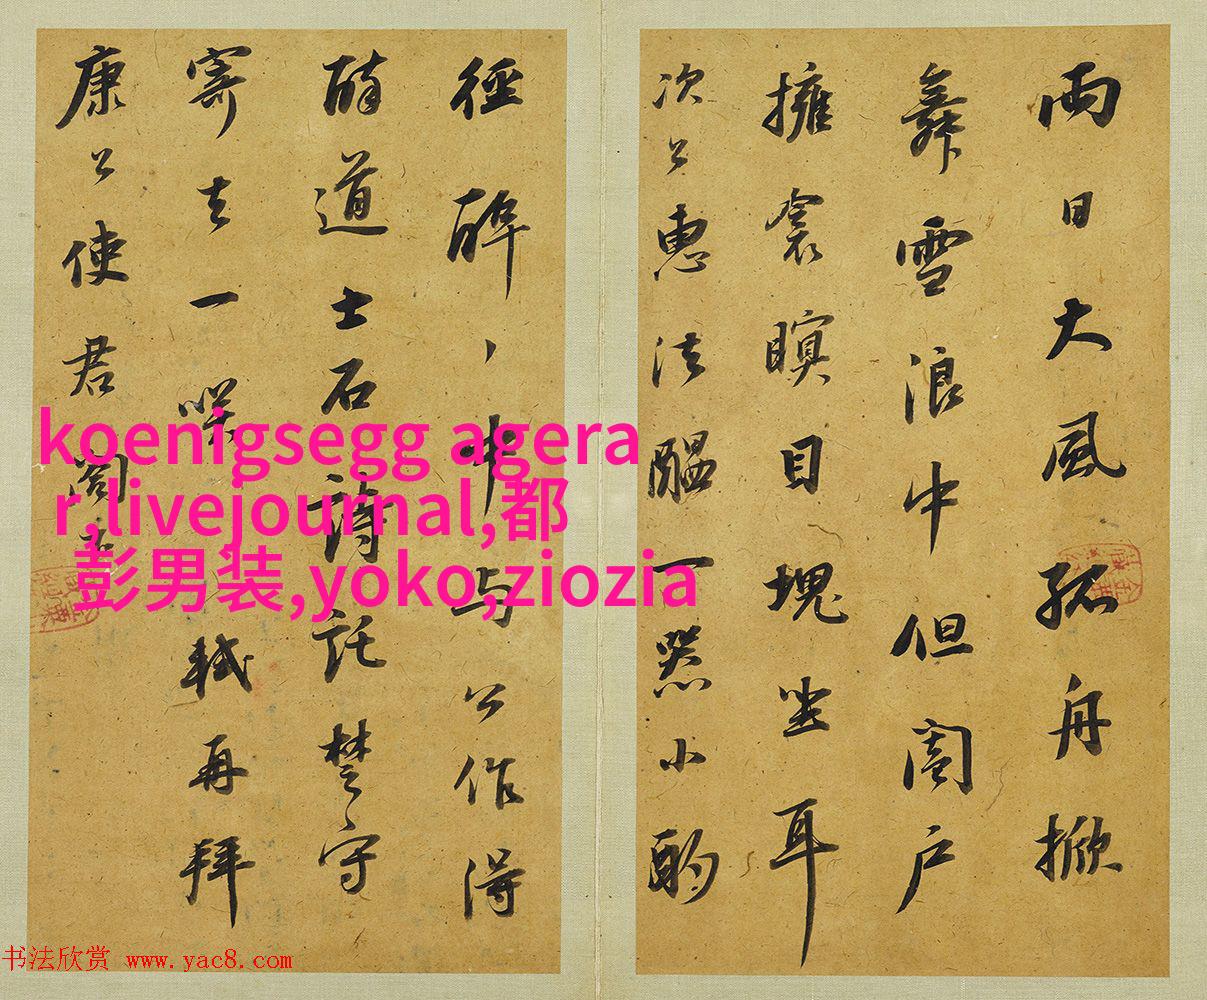 兩日大風孤舟掀
舞雪浪中但闔戶
擁衾瞑目塊坐耳
次公惠法醞一器小酌
徑醉、中與公作得
醉道士石詩託楚守
寄去一笑 軾再拜
康公使君閤下
koenigsegg agera
r,livejournal,都
彭男装,yoko,ziozia
书法欣赏 www.yac8.com